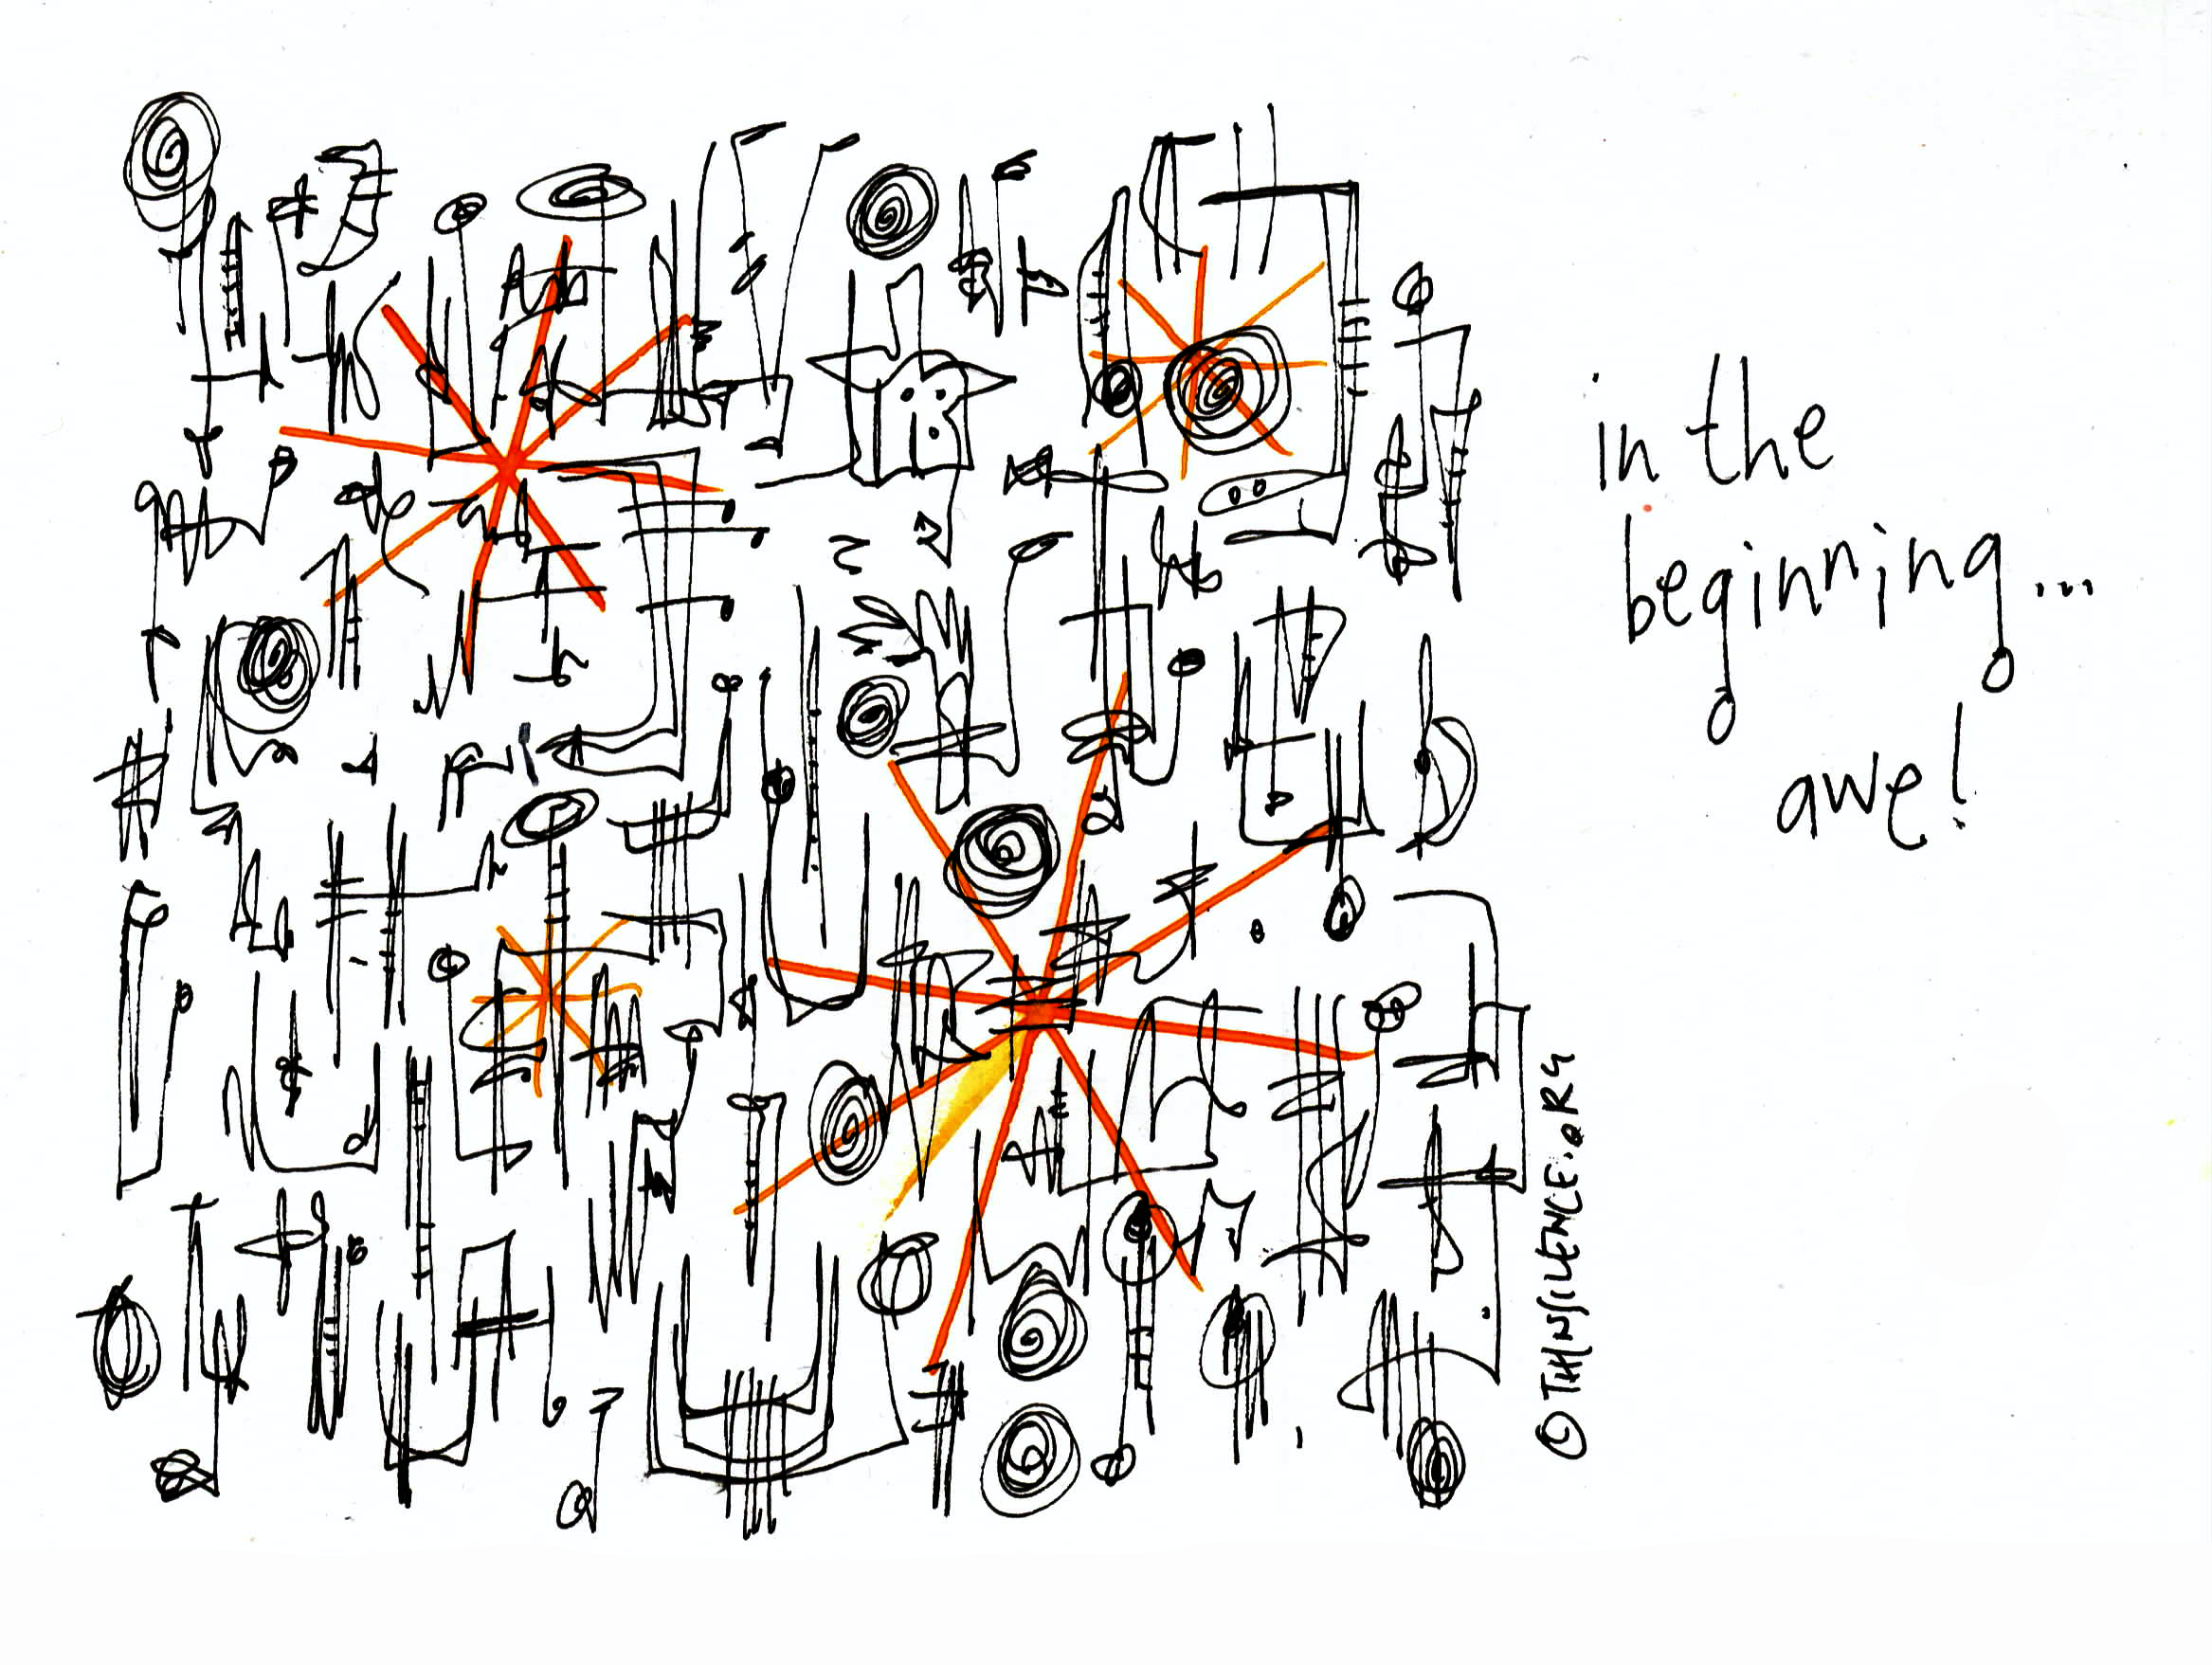 in the
beginning...
awe!
© THINSILENCE.ORG